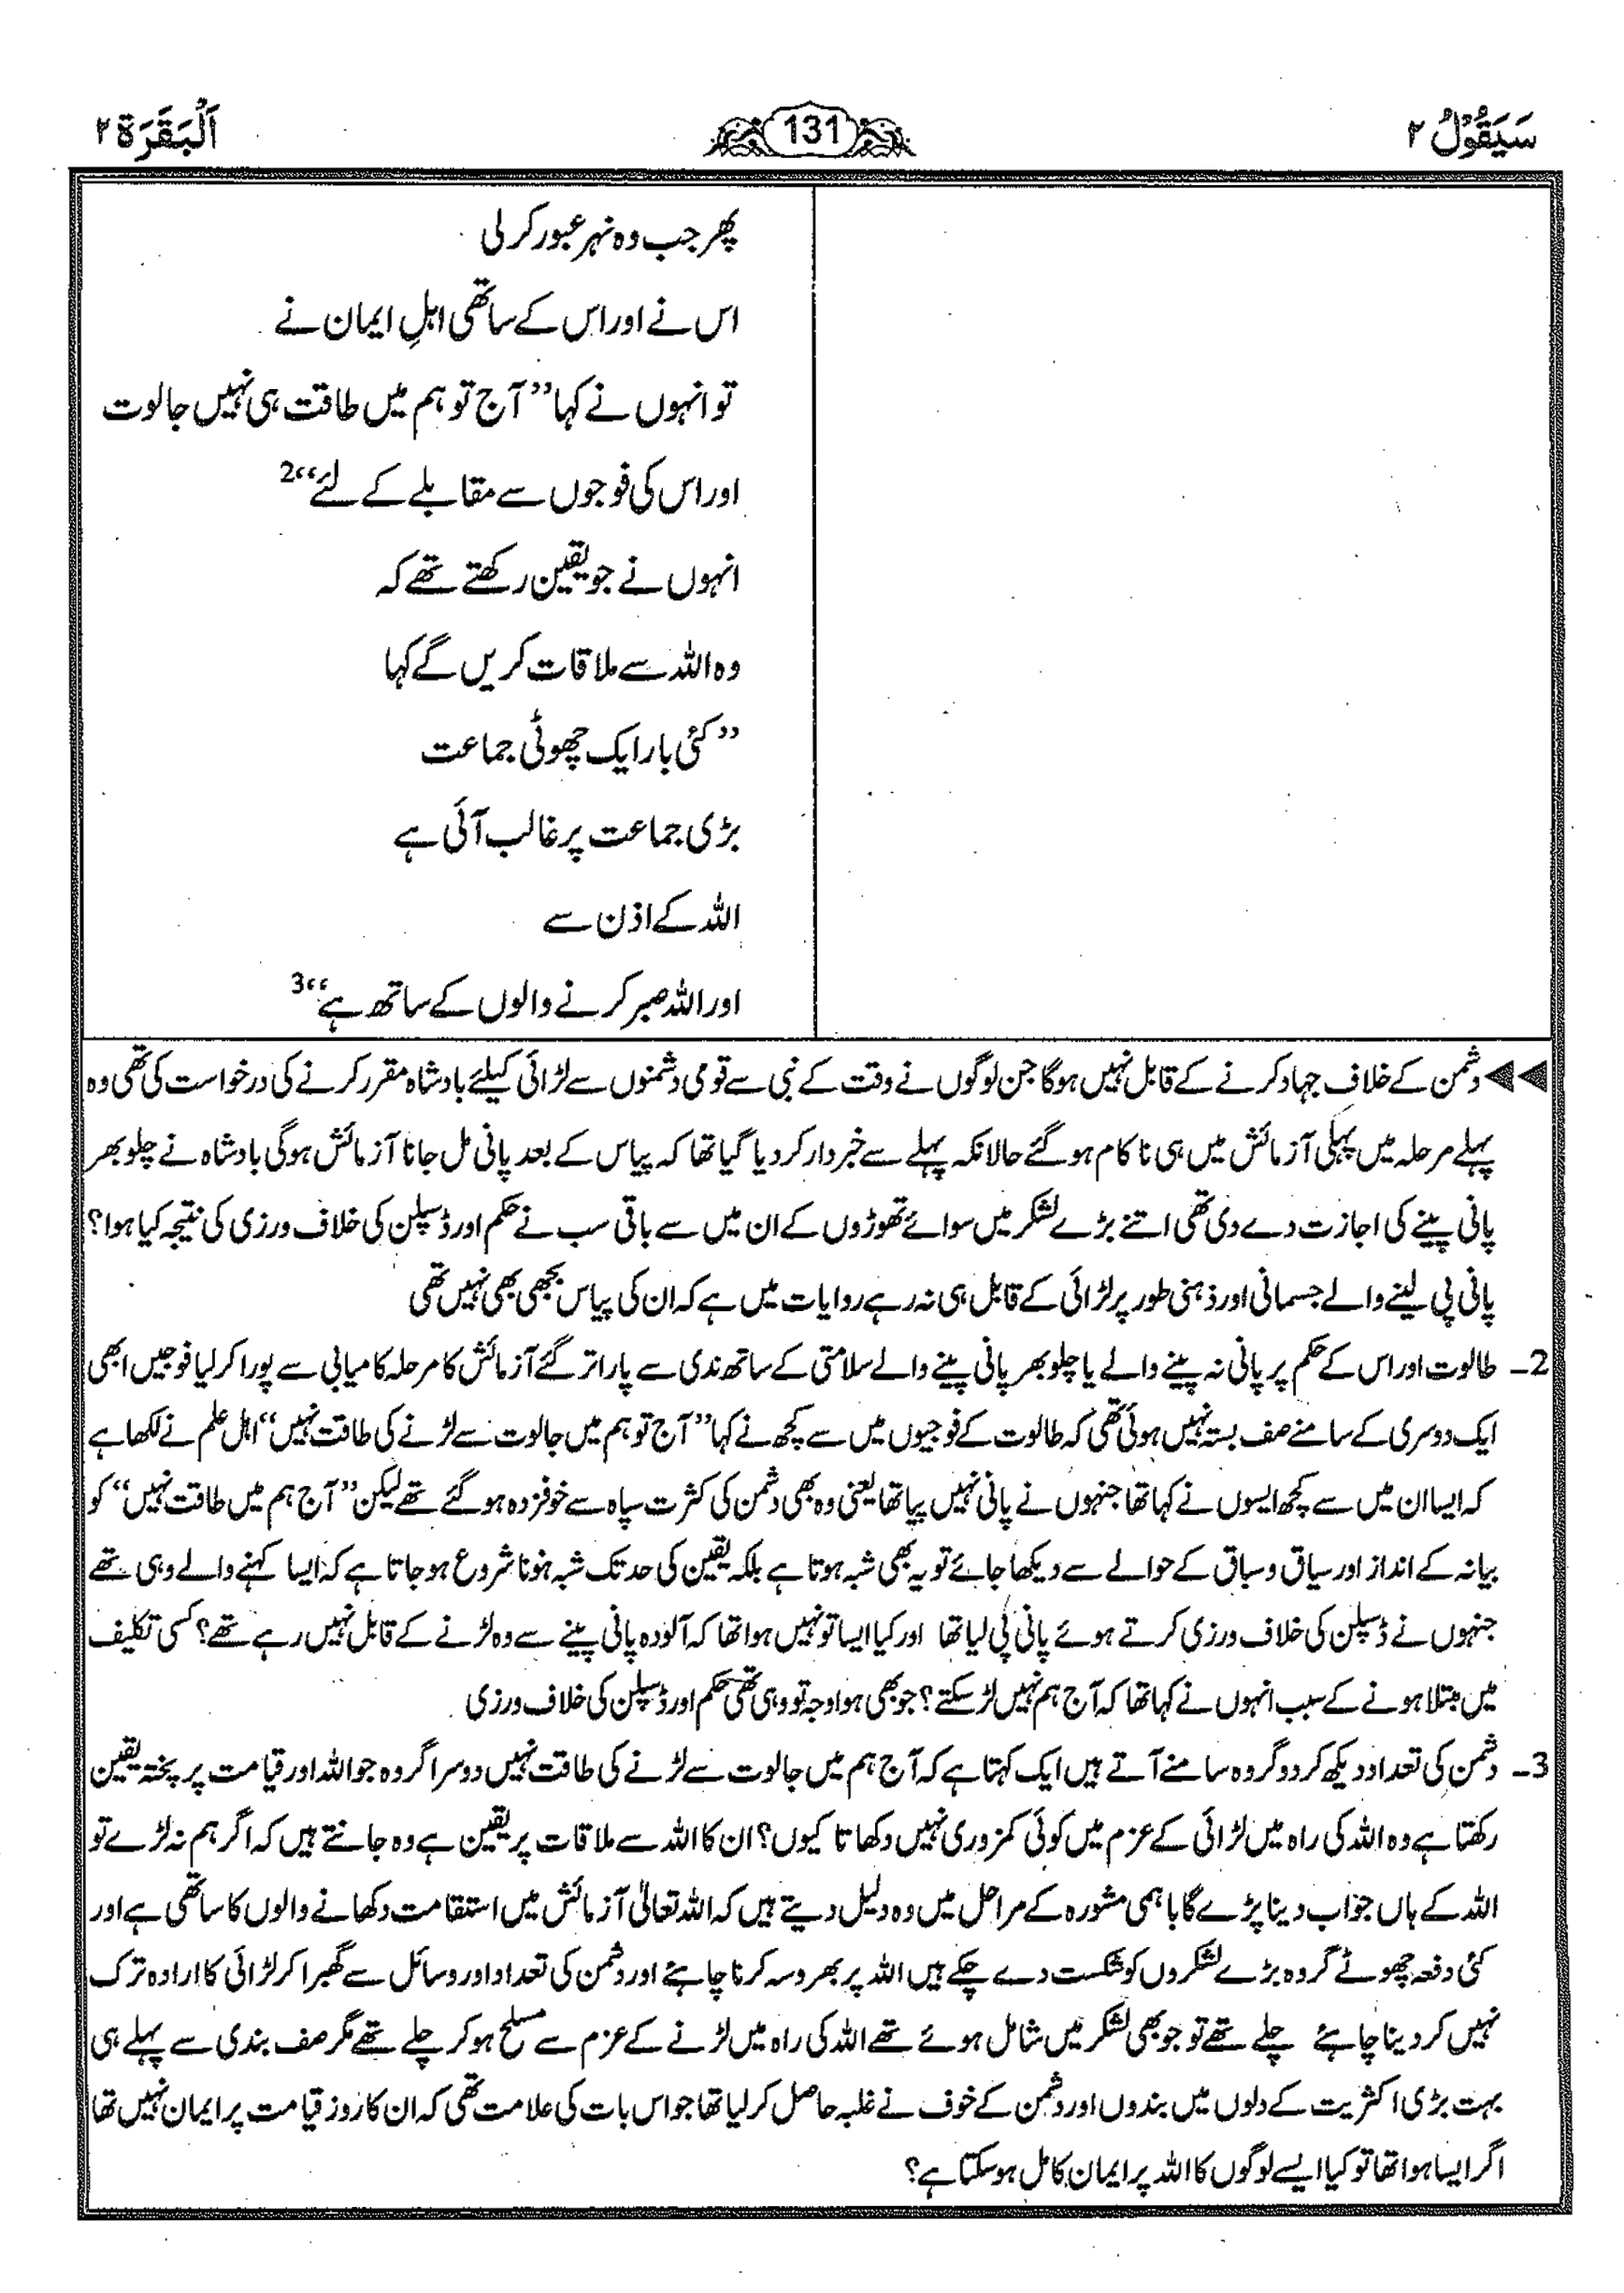 سَيَقُوْلُ ۲
131
اَلْبَقَرَة ۲
پھر جب وہ نہر عبور کر لی
اس نے اور اس کے ساتھی اہلِ ایمان نے
تو انہوں نے کہا ”آج تو ہم میں طاقت ہی نہیں جالوت
اور اس کی فوجوں سے مقابلے کے لئے“2
انہوں نے جو یقین رکھتے تھے کہ
وہ اللہ سے ملاقات کریں گے کہا
”کئی بار ایک چھوٹی جماعت
بڑی جماعت پر غالب آئی ہے
اللہ کے اذن سے
اور اللہ صبر کرنے والوں کے ساتھ ہے“3
◀◀ دشمن کے خلاف جہاد کرنے کے قابل نہیں ہوگا جن لوگوں نے وقت کے نبی سے قومی دشمنوں سے لڑائی کیلئے بادشاہ مقرر کرنے کی درخواست کی تھی وہ
پہلے مرحلہ میں پہلی آزمائش میں ہی ناکام ہو گئے حالانکہ پہلے سے خبردار کر دیا گیا تھا کہ پیاس کے بعد پانی مل جانا آزمائش ہوگی بادشاہ نے چلو بھر
پانی پینے کی اجازت دے دی تھی اتنے بڑے لشکر میں سوائے تھوڑوں کے ان میں سے باقی سب نے حکم اور ڈسپلن کی خلاف ورزی کی نتیجہ کیا ہوا؟
پانی پی لینے والے جسمانی اور ذہنی طور پر لڑائی کے قابل ہی نہ رہے روایات میں ہے کہ ان کی پیاس بجھی بھی نہیں تھی
2۔ طالوت اور اس کے حکم پر پانی نہ پینے والے یا چلو بھر پانی پینے والے سلامتی کے ساتھ ندی سے پار اتر گئے آزمائش کا مرحلہ کامیابی سے پورا کر لیا فوجیں ابھی
ایک دوسری کے سامنے صف بستہ نہیں ہوئی تھی کہ طالوت کے فوجیوں میں سے کچھ نے کہا ”آج تو ہم میں جالوت سے لڑنے کی طاقت نہیں“ اہل علم نے لکھا ہے
کہ ایسا ان میں سے کچھ ایسوں نے کہا تھا جنہوں نے پانی نہیں پیا تھا یعنی وہ بھی دشمن کی کثرت سپاہ سے خوفزدہ ہو گئے تھے لیکن ”آج ہم میں طاقت نہیں“ کو
بیانہ کے انداز اور سیاق و سباق کے حوالے سے دیکھا جائے تو یہ بھی شبہ ہوتا ہے بلکہ یقین کی حد تک شبہ ہونا شروع ہو جاتا ہے کہ ایسا کہنے والے وہی تھے
جنہوں نے ڈسپلن کی خلاف ورزی کرتے ہوئے پانی پی لیا تھا اور کیا ایسا تو نہیں ہوا تھا کہ آلودہ پانی پینے سے وہ لڑنے کے قابل نہیں رہے تھے؟ کسی تکلیف
میں مبتلا ہونے کے سبب انہوں نے کہا تھا کہ آج ہم نہیں لڑ سکتے؟ جو بھی ہوا وجہ تو وہی تھی حکم اور ڈسپلن کی خلاف ورزی
3۔ دشمن کی تعداد دیکھ کر دو گروہ سامنے آتے ہیں ایک کہتا ہے کہ آج ہم میں جالوت سے لڑنے کی طاقت نہیں دوسرا گروہ جو اللہ اور قیامت پر پختہ یقین
رکھتا ہے وہ اللہ کی راہ میں لڑائی کے عزم میں کوئی کمزوری نہیں دکھاتا کیوں؟ ان کا اللہ سے ملاقات پر یقین ہے وہ جانتے ہیں کہ اگر ہم نہ لڑے تو
اللہ کے ہاں جواب دینا پڑے گا باہمی مشورہ کے مراحل میں وہ دلیل دیتے ہیں کہ اللہ تعالیٰ آزمائش میں استقامت دکھانے والوں کا ساتھی ہے اور
کئی دفعہ چھوٹے گروہ بڑے لشکروں کو شکست دے چکے ہیں اللہ پر بھروسہ کرنا چاہئے اور دشمن کی تعداد اور وسائل سے گھبرا کر لڑائی کا ارادہ ترک
نہیں کر دینا چاہئے چلے تھے تو جو بھی لشکر میں شامل ہوئے تھے اللہ کی راہ میں لڑنے کے عزم سے مسلح ہو کر چلے تھے مگر صف بندی سے پہلے ہی
بہت بڑی اکثریت کے دلوں میں بندوں اور دشمن کے خوف نے غلبہ حاصل کر لیا تھا جو اس بات کی علامت تھی کہ ان کا روز قیامت پر ایمان نہیں تھا
اگر ایسا ہوا تھا تو کیا ایسے لوگوں کا اللہ پر ایمان کامل ہو سکتا ہے؟